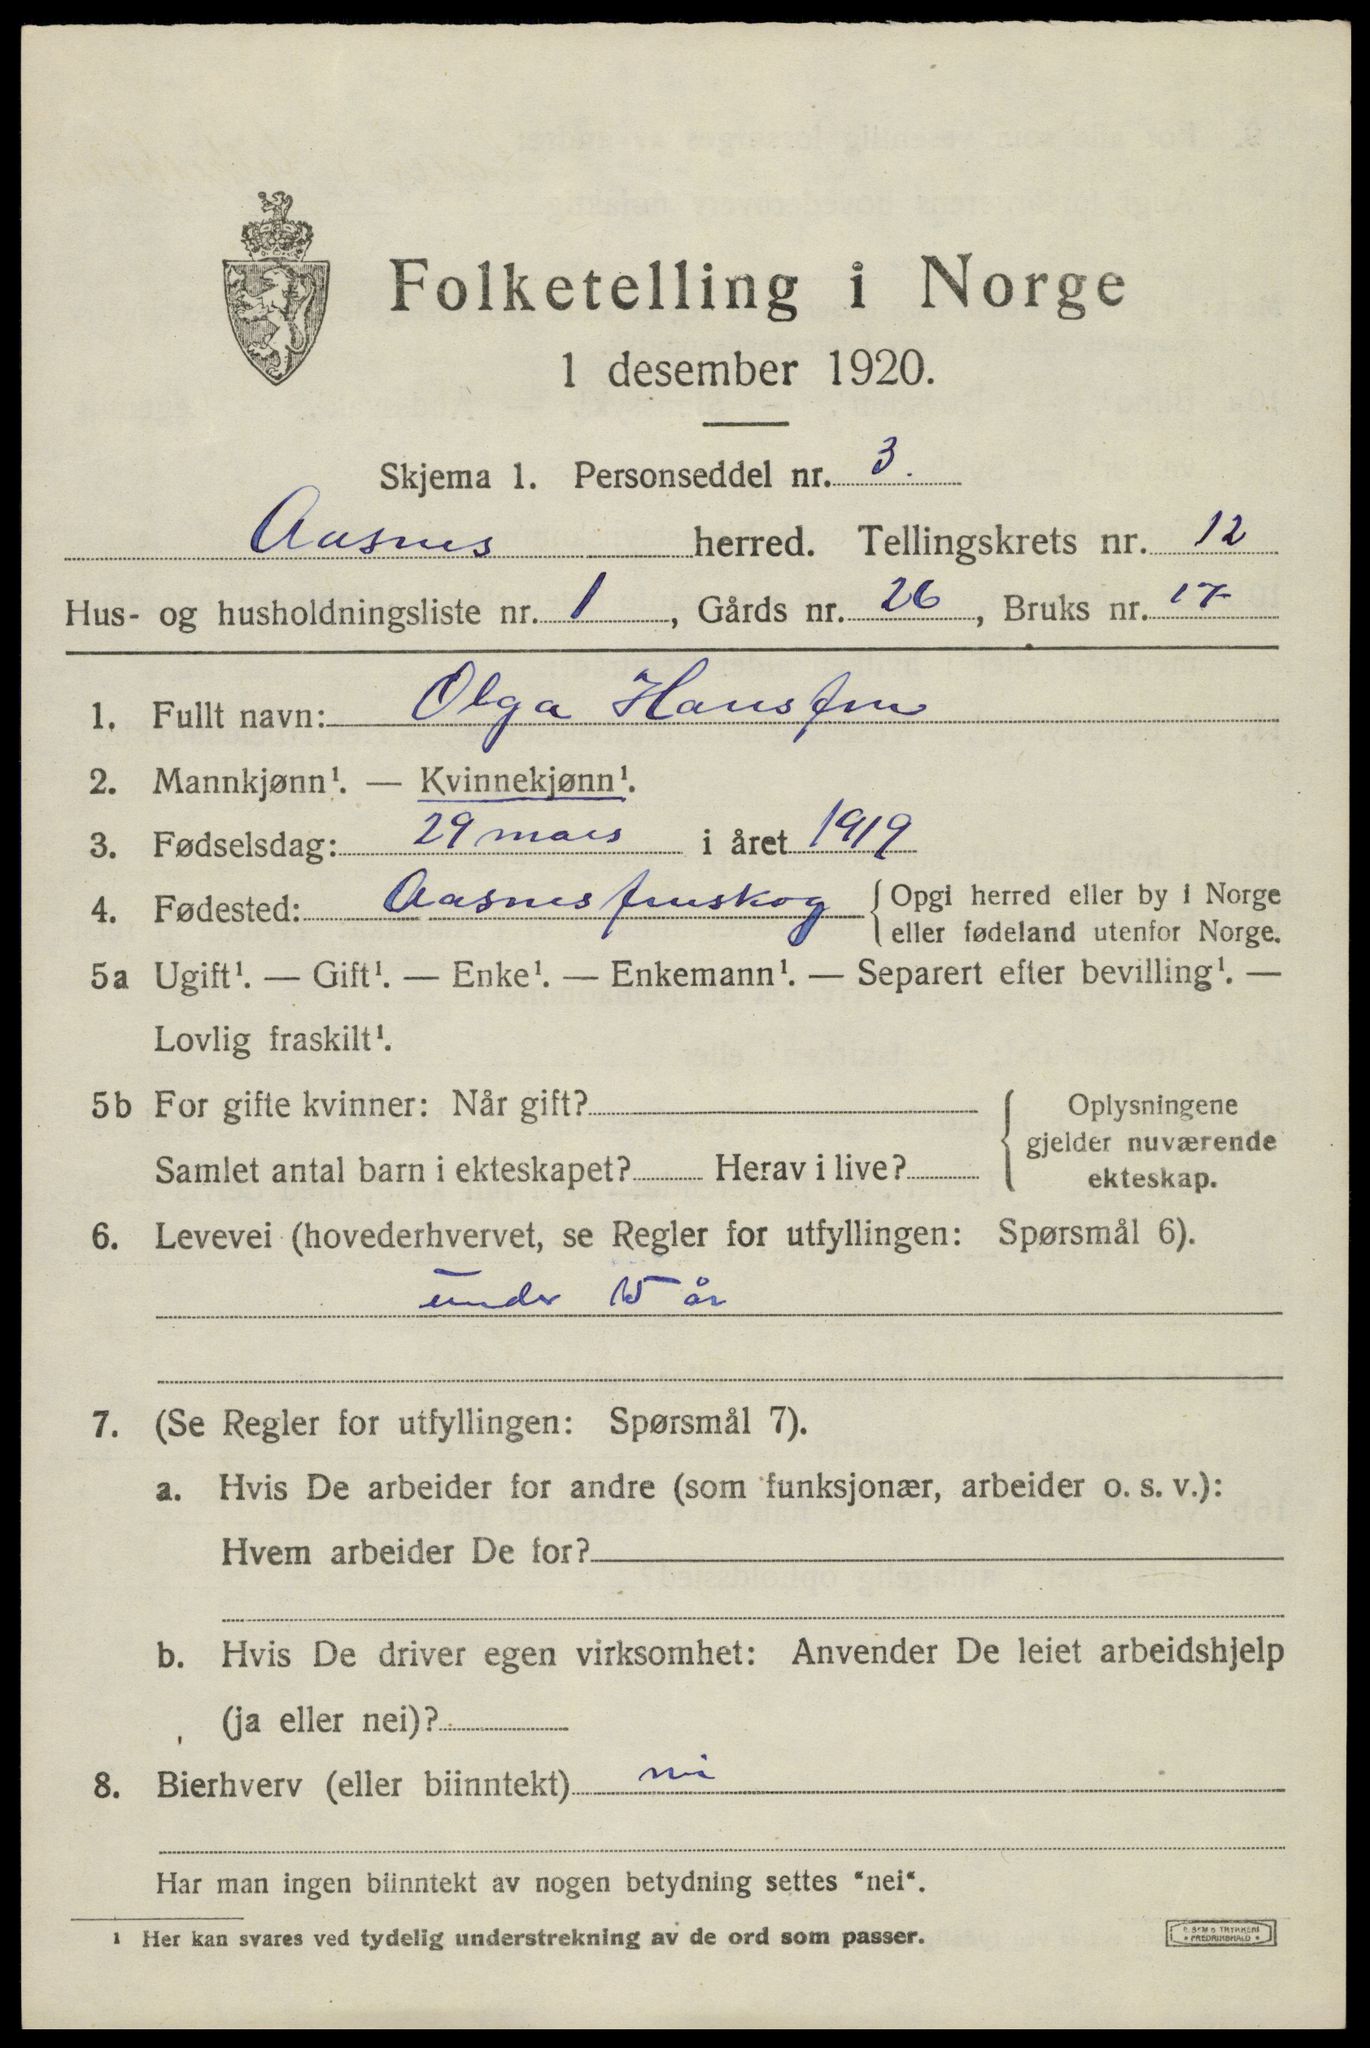 Folketelling i Norge
1 desember 1920.
Skjema 1. Personseddel nr. 3.
Aasnes herred. Tellingskrets nr. 12
Hus- og husholdningsliste nr. 1, Gårds nr. 26, Bruks nr. 17
1. Fullt navn: Olga Hansen
2. Mannkjønn¹. — Kvinnekjønn¹.
3. Fødselsdag: 29 mars i året 1919
4. Fødested: Aasnes finskog { Opgi herred eller by i Norge
eller fødeland utenfor Norge.
5a Ugift¹. — Gift¹. — Enke¹. — Enkemann¹. — Separert efter bevilling¹. —
Lovlig fraskilt¹.
5b For gifte kvinner: Når gift?
Samlet antal barn i ekteskapet? Herav i live?
{ Oplysningene
gjelder nuværende
ekteskap.
6. Levevei (hovederhvervet, se Regler for utfyllingen: Spørsmål 6).
under 15 år
7. (Se Regler for utfyllingen: Spørsmål 7).
a. Hvis De arbeider for andre (som funksjonær, arbeider o. s. v.):
Hvem arbeider De for?
b. Hvis De driver egen virksomhet: Anvender De leiet arbeidshjelp
(ja eller nei)?
8. Bierhverv (eller biinntekt) nei
Har man ingen biinntekt av nogen betydning settes "nei".
¹ Her kan svares ved tydelig understrekning av de ord som passer.